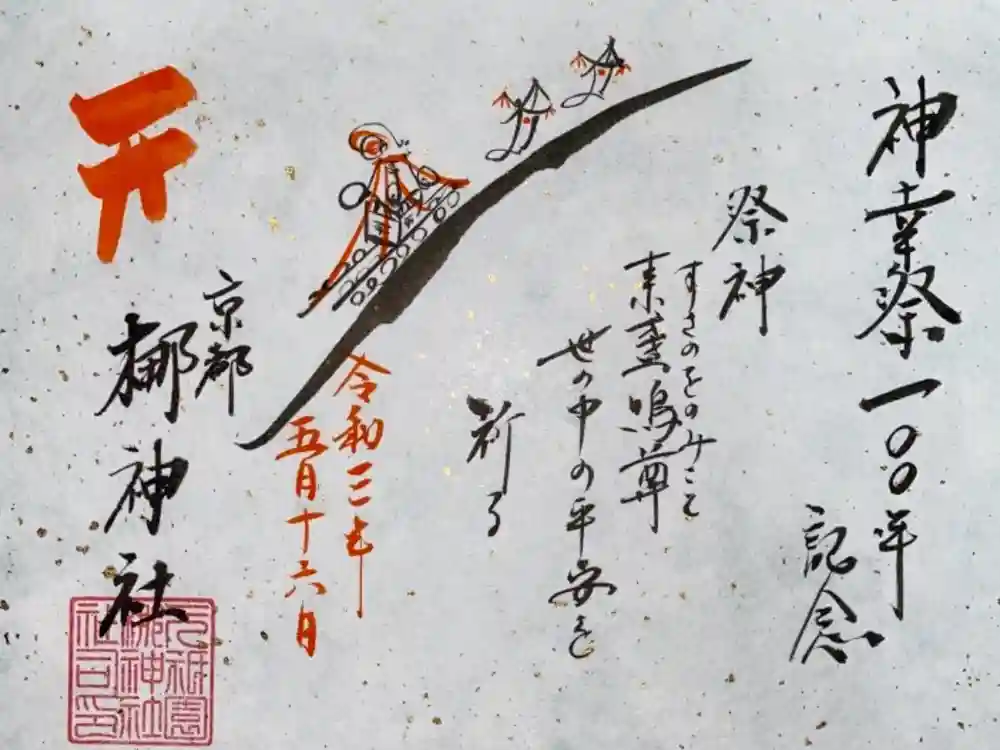 神幸祭一〇〇年
記念
祭神
すさのをのみこと
素盞嗚尊
世の中の平安を
祈る
令和三年
五月十六日
京都
梛神社
元祇園
梛神社
社司印